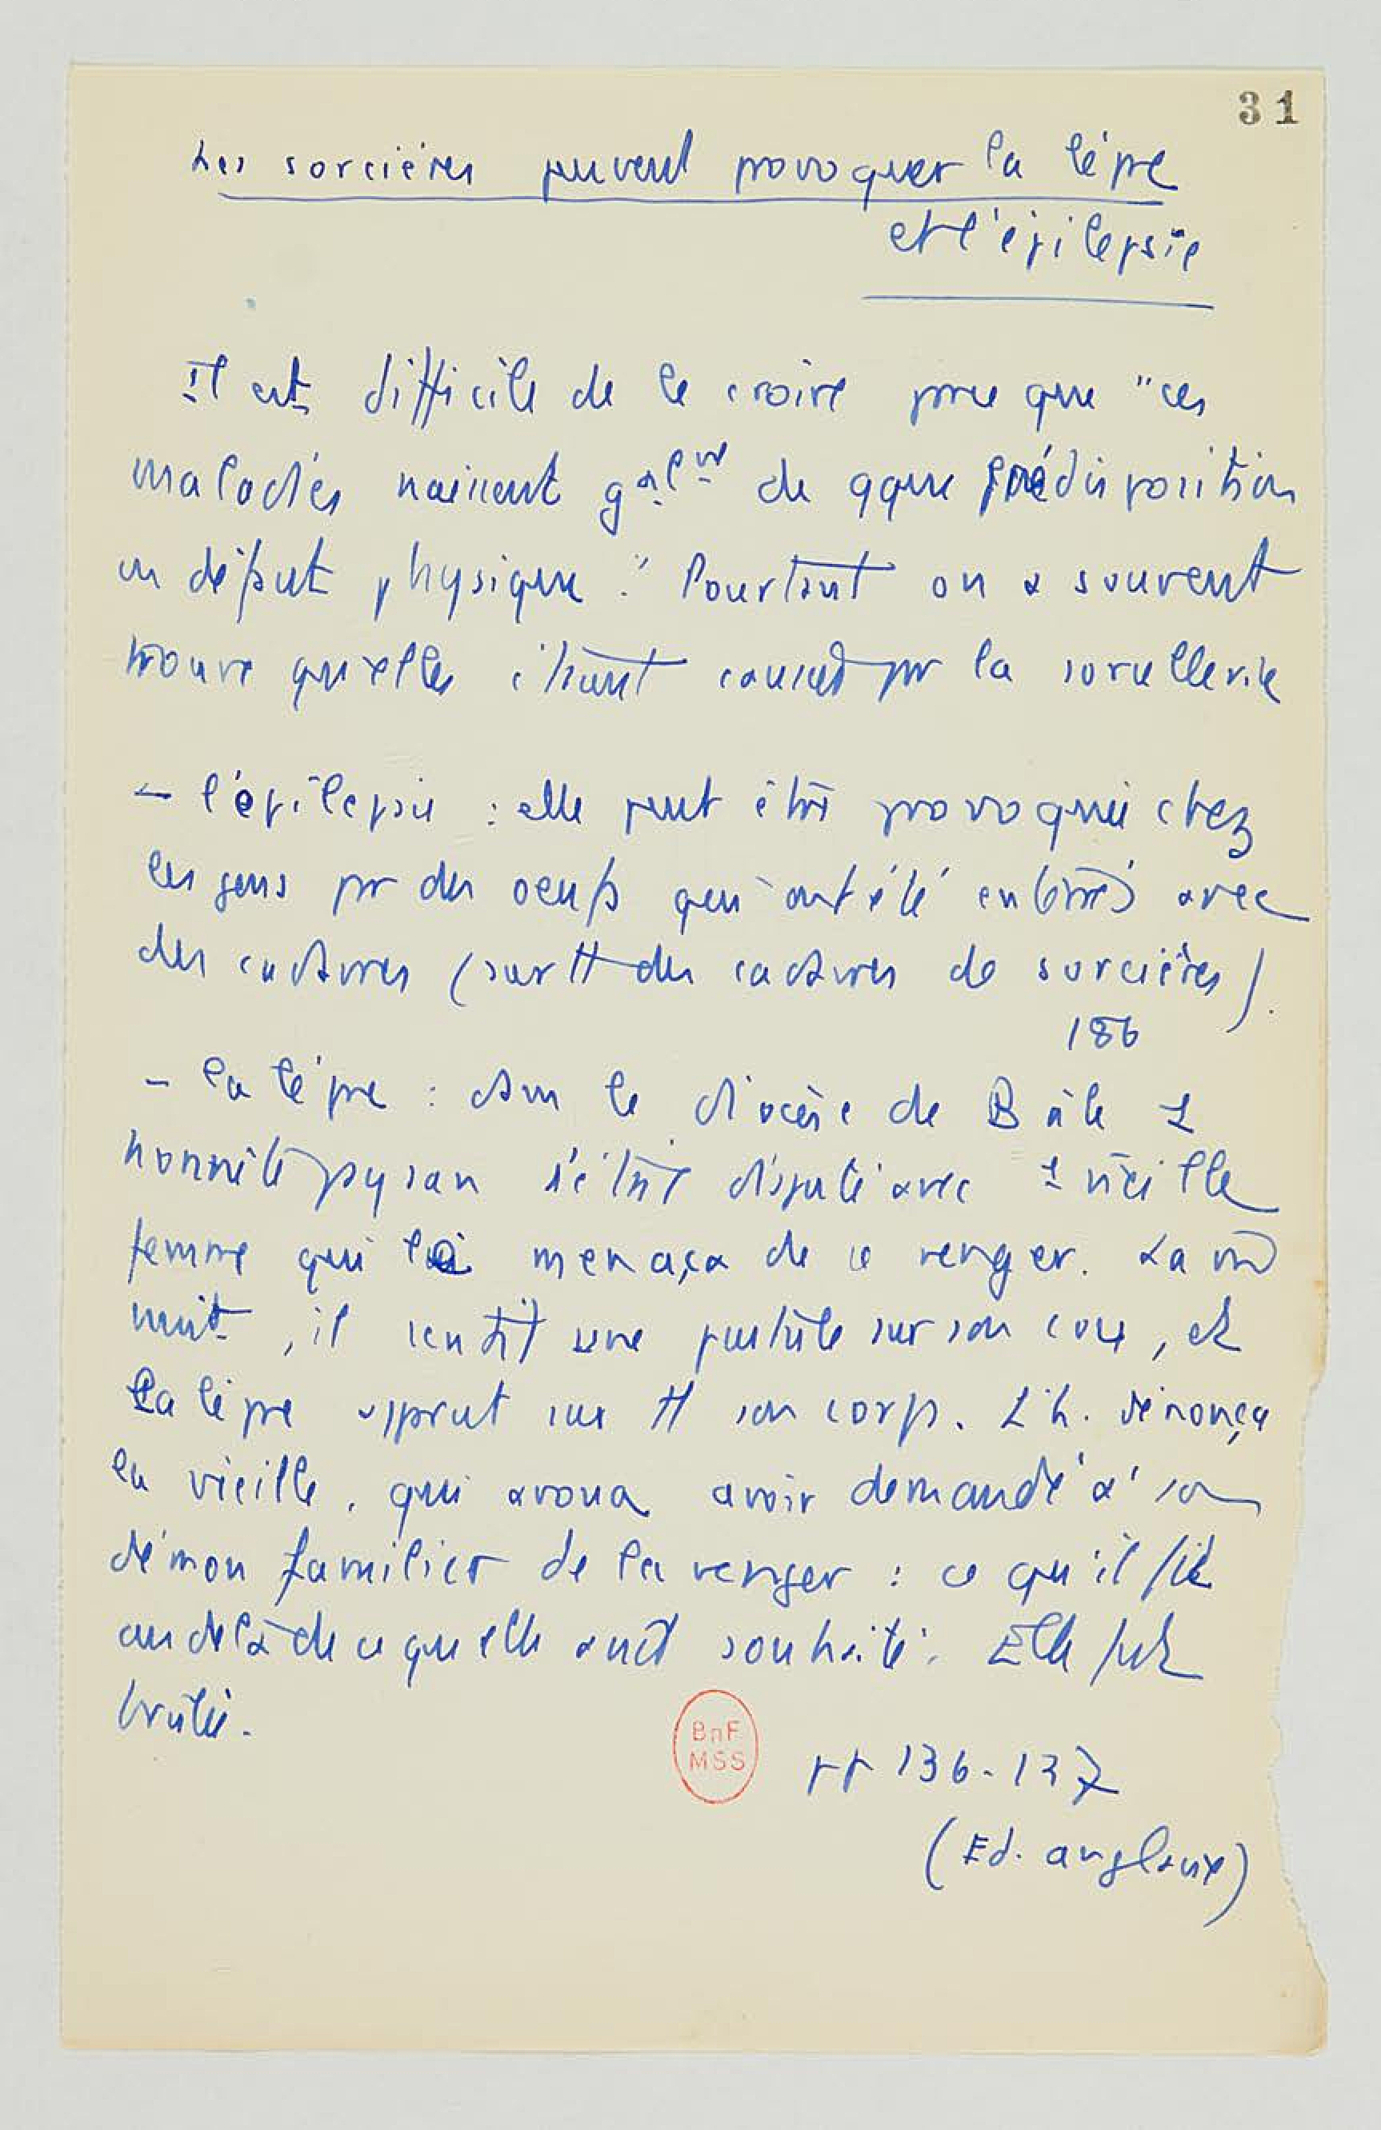 31
Les sorcières peuvent provoquer la lèpre
et l'épilepsie
Il est difficile de le croire parce que "ces
maladies naissent gnalmt de qque prédisposition
ou défaut physique". Pourtant on a souvent
trouvé qu'elles étaient causées par la sorcellerie
- l'épilepsie : elle peut être provoquée chez
les gens par des oeufs qui ont été enterrés avec
des cadavres (surtt des cadavres de sorcières).
186
- la lèpre : dans le diocèse de Bâle 1
honnête paysan s'était disputé avec 1 vieille
femme qui le menaça de se venger. La mê
nuit, il sentit une pustule sur son cou, et
la lèpre apparut sur tt son corps. L'h. dénonça
la vieille, qui avoua avoir demandé à son
démon familier de la venger : ce qu'il fit
au delà de ce qu'elle avait souhaité. Elle fut
brûlée.
BnF
MSS
pp 136-137
(Ed. anglaise)